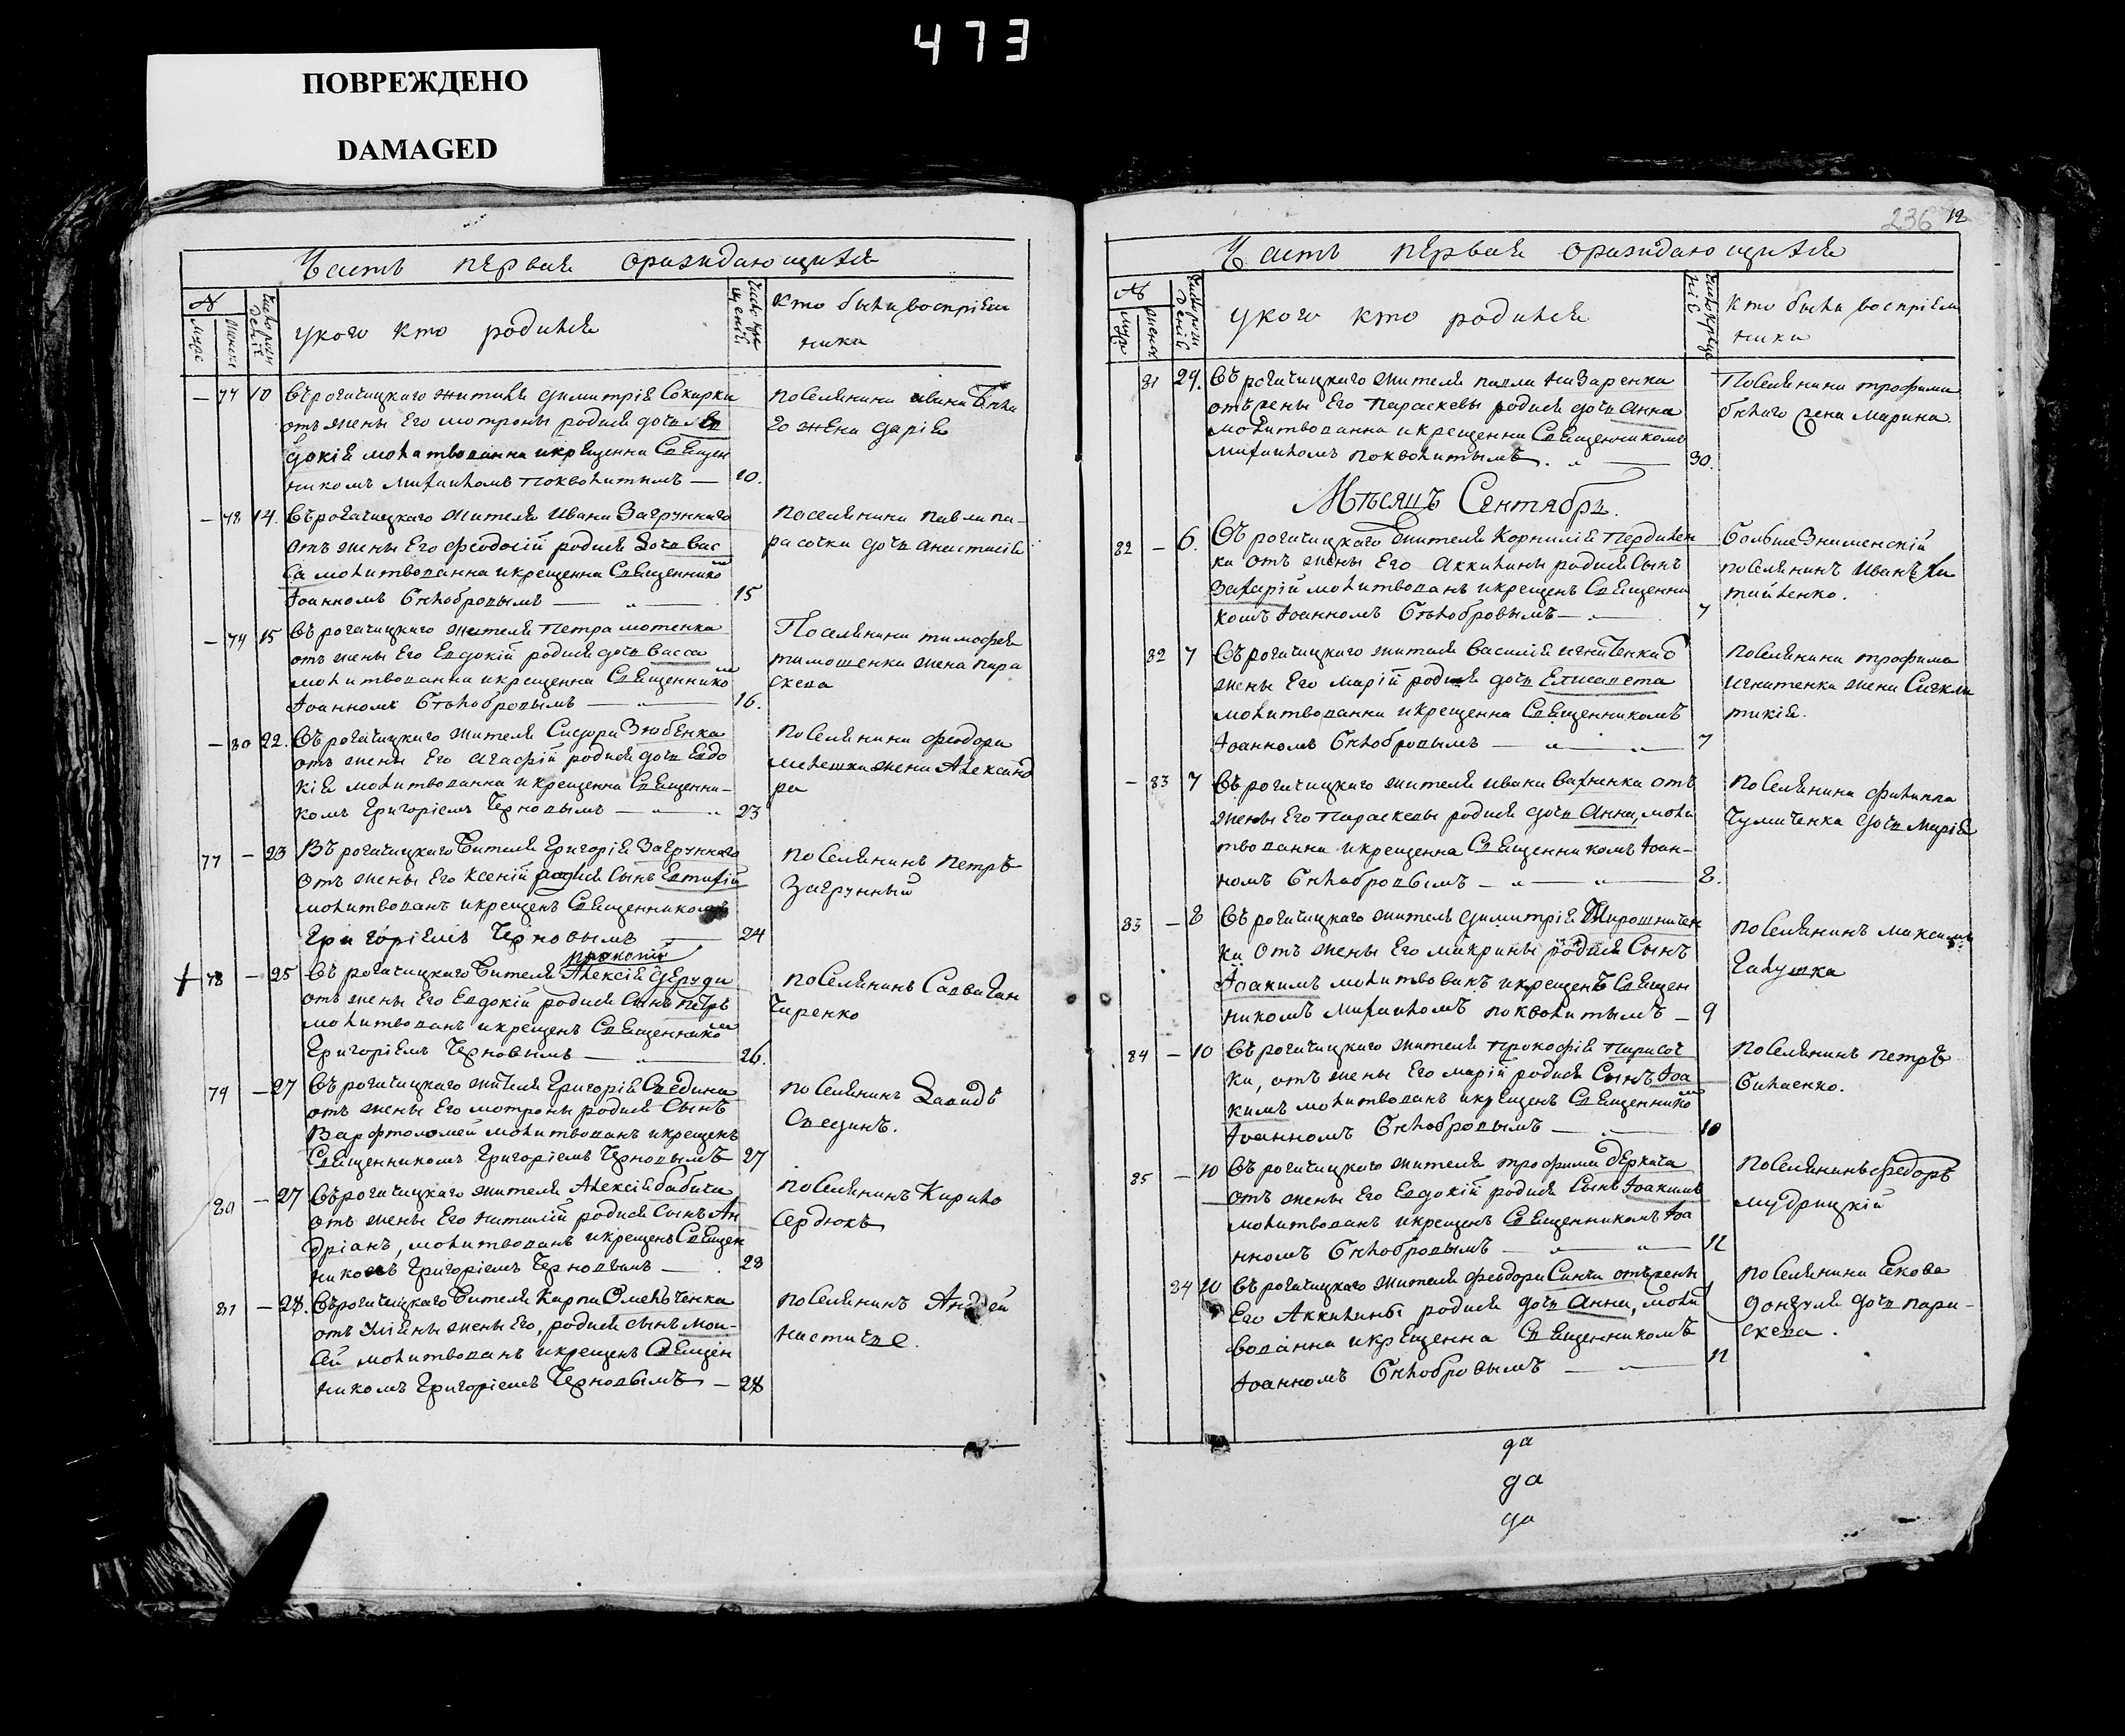 473
ПОВРЕЖДЕНО
DAMAGED
Часть первая ораждающихся
№
муж
женск
у кого кто родился
кто были восприем
ники
— 77 10 Въ рогачицкаго жителя димитрія Сокирки
отъ жены его мотроны родися дочь Ев
докія молитвованна и крещенна Священ
никомъ михаиломъ покволитымъ — 10.
поселянина ивана бѣла
го жена дарія
— 78 14. Въ рогачицкаго жителя ивана Загруннаго
отъ жены Его феодосій родися дочь вас
са молитвованна и крещенна Священнико
Іоанномъ бѣлобровымъ — „ — 15
поселянина павла па-
расочки дочь анастасія
— 79 15 Въ рогачицкаго жителя петра мотенка
отъ жены Его Евдокій родися дочь васса
молитвованна и крещенна Священнико
Іоанномъ бѣлобровымъ — „ — 16.
Поселянина тимофея
тимошенка жена пара
скева
— 80 22. Въ рогачицкаго жителя Сидора Зюбенка
отъ жены Его агафій родися дочь Евдо
кія молитвованна и крещенна Священни-
комъ григоріемъ Черновымъ — „ — „ 23
поселянина феодора
мелешка жена Александ
ра
77 — 23 Въ рогачицкаго жителя григорія Загруннаго
отъ жены Его Ксеній родися Сынъ Евтихій
молитвованъ и крещенъ Священникомъ
григоріемъ Черновымъ — 24
поселянинъ петръ
загрунный
прокопій
+ 78 — 25 Въ рогачицкаго жителя Алексія деруди
отъ жены Его Евдокій родися Сынъ петръ
молитвованъ и крещенъ Священнико
Григоріемъ Черновымъ — „ — 26.
поселянинъ Савва ган
чиренко
79 — 27 Въ рогачицкаго жителя григорія Сведина
отъ жены Его мотроны родися Сынъ
Варфоломей молитвованъ и крещенъ
Священникомъ григоріемъ Черновымъ 27
поселянинъ Давидъ
Сведин.
80 — 27 Въ рогачицкаго жителя Алексія бабича
отъ жены Его наталій родися Сынъ Ан
дріанъ, молитвованъ и крещенъ Священ
никомъ григоріемъ Черновымъ — . 28
поселянинъ Кирило
Сердюкъ
81 — 28. Въ рогачицкаго жителя Карпа Омельченка
отъ Уліяны жены Его, родися сынъ мои-
сей молитвованъ и крещенъ Священ
никомъ григоріемъ Черновымъ — 28
поселянинъ Андрей
236 12
Часть первая ораждающихся
№
муж
женск
у кого кто родися
кто были восприем
ники
81 29. Въ рогачицкаго жителя павла назаренка
отъ жены Его параскевы родися дочь анна
молитвованна и крещенна Священникомъ
михаиломъ покволитымъ. „ — 30.
Поселянина трофима
бѣлаго жена марина.
Мѣсяцъ Сентябрь.
82 — 6. Въ рогачицкаго жителя Корнилія пердилен
ка отъ жены Его Аккилины родися Сынъ
Захарій молитвованъ и крещенъ Священни
комъ Іоанномъ бѣлобровымъ — „ 7
больше Знаменскій
поселянинъ иванъ
82 7 Въ рогачицкаго жителя василія игнатенка ѿ
жены Его марій родися дочь Елисавета
молитвованна и крещенна Священникомъ
Іоанномъ бѣлобровымъ — „ — „ — 7
поселянина трофима
игнатенка жена Сигкли
тикія.
— 83 7 Въ рогачицкаго жителя ивана вахненка отъ
жены Его параскевы родися дочь Анна, моли
твованна и крещенна Священникомъ Іоан-
номъ бѣлобровымъ — „ — „ — 8.
поселянина филиппа
Чумаченка дочь марія
83 — 8 Въ рогачицкаго жителя димитрія Мирошничен
ка отъ жены Его макрины родися Сынъ
Іоакимъ молитвованъ и крещенъ Священ
никомъ михаиломъ поквалитымъ — 9
поселянинъ максимъ
Галушка
84 — 10 Въ рогачицкаго жителя прокофія парасоч
ки, отъ жены Его марій родися Сынъ Іоа
кимъ молитвованъ и крещенъ Священнико
Іоанномъ бѣлобровымъ — „ — 10
поселянинъ петръ
билаенко.
85 — 10 Въ рогачицкаго жителя трофима деркача
отъ жены Его Евдокій родися Сынъ Іоакимъ
молитвованъ и крещенъ Священникомъ Іоа
нномъ бѣлобровымъ — „ — „ — 11
поселянинъ федоръ
мудрицкій
84 10 Въ рогачицкаго жителя феодора Синчи отъ жены
Его Аккилины родися дочь Анна, моли
вованна и крещенна Священникомъ
Іоанномъ бѣлобровымъ — „ — 11
поселянина Екова
донзуля дочь пара-
скева.
да
да
да